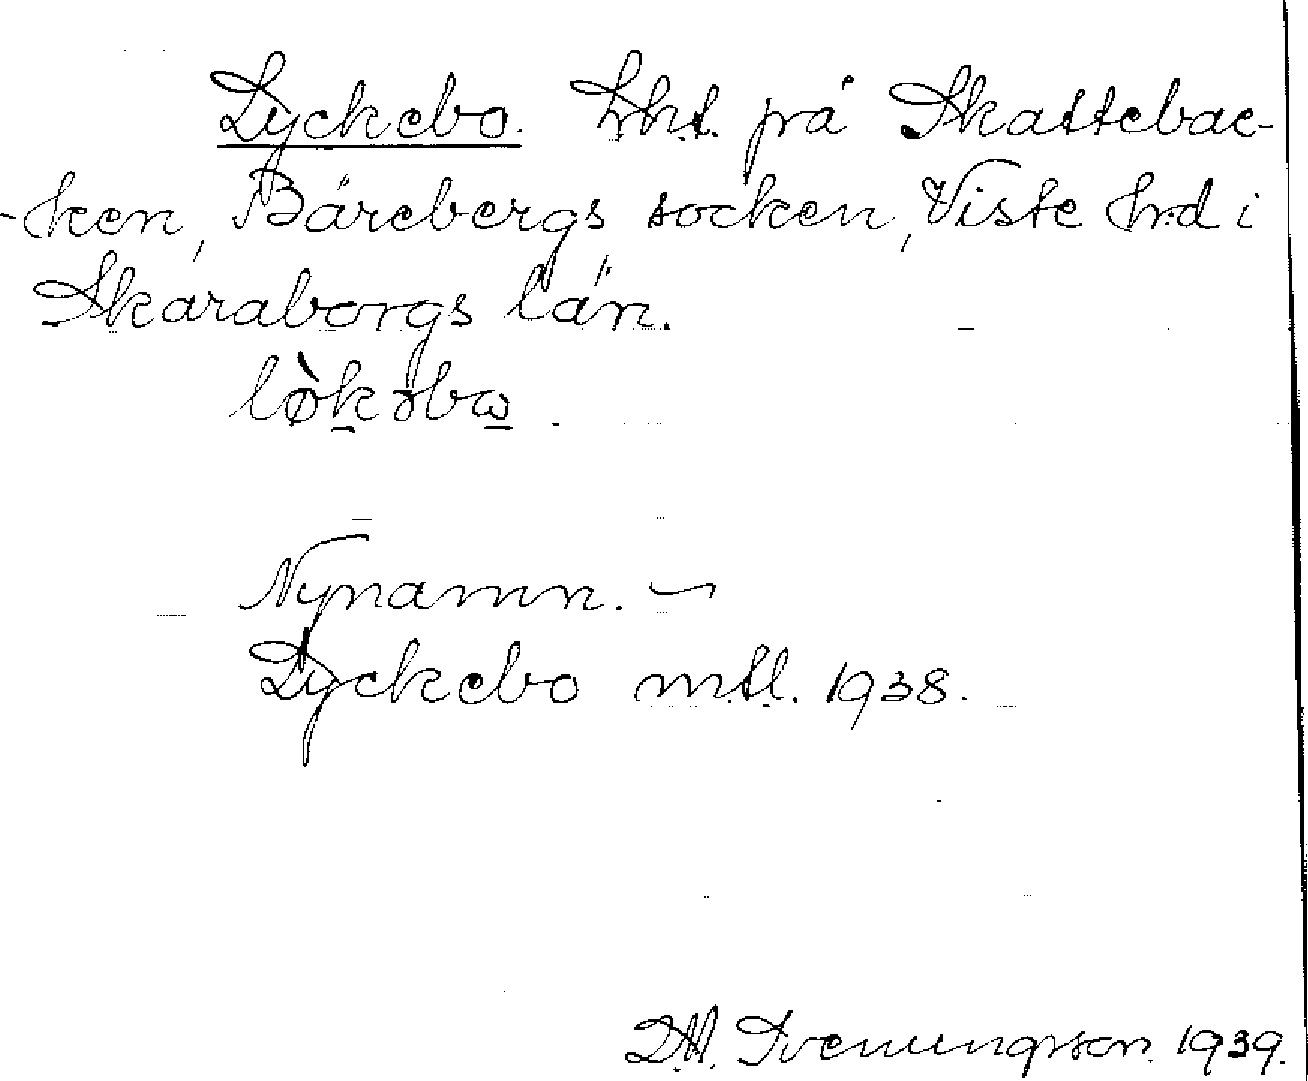 Lyckebo. Lht. på Skattebac-
-ken, Bärebergs socken, Viste hrd i
Skaraborgs län.
lø̀kəbɷ.
Nynamn. –
Lyckebo mtl. 1938.
D.A. Svenungsson 1939.